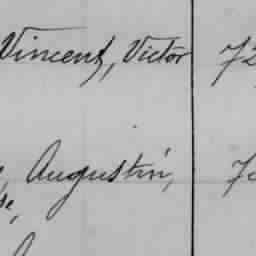 Vincent, Victor 72
Augustin,
se,